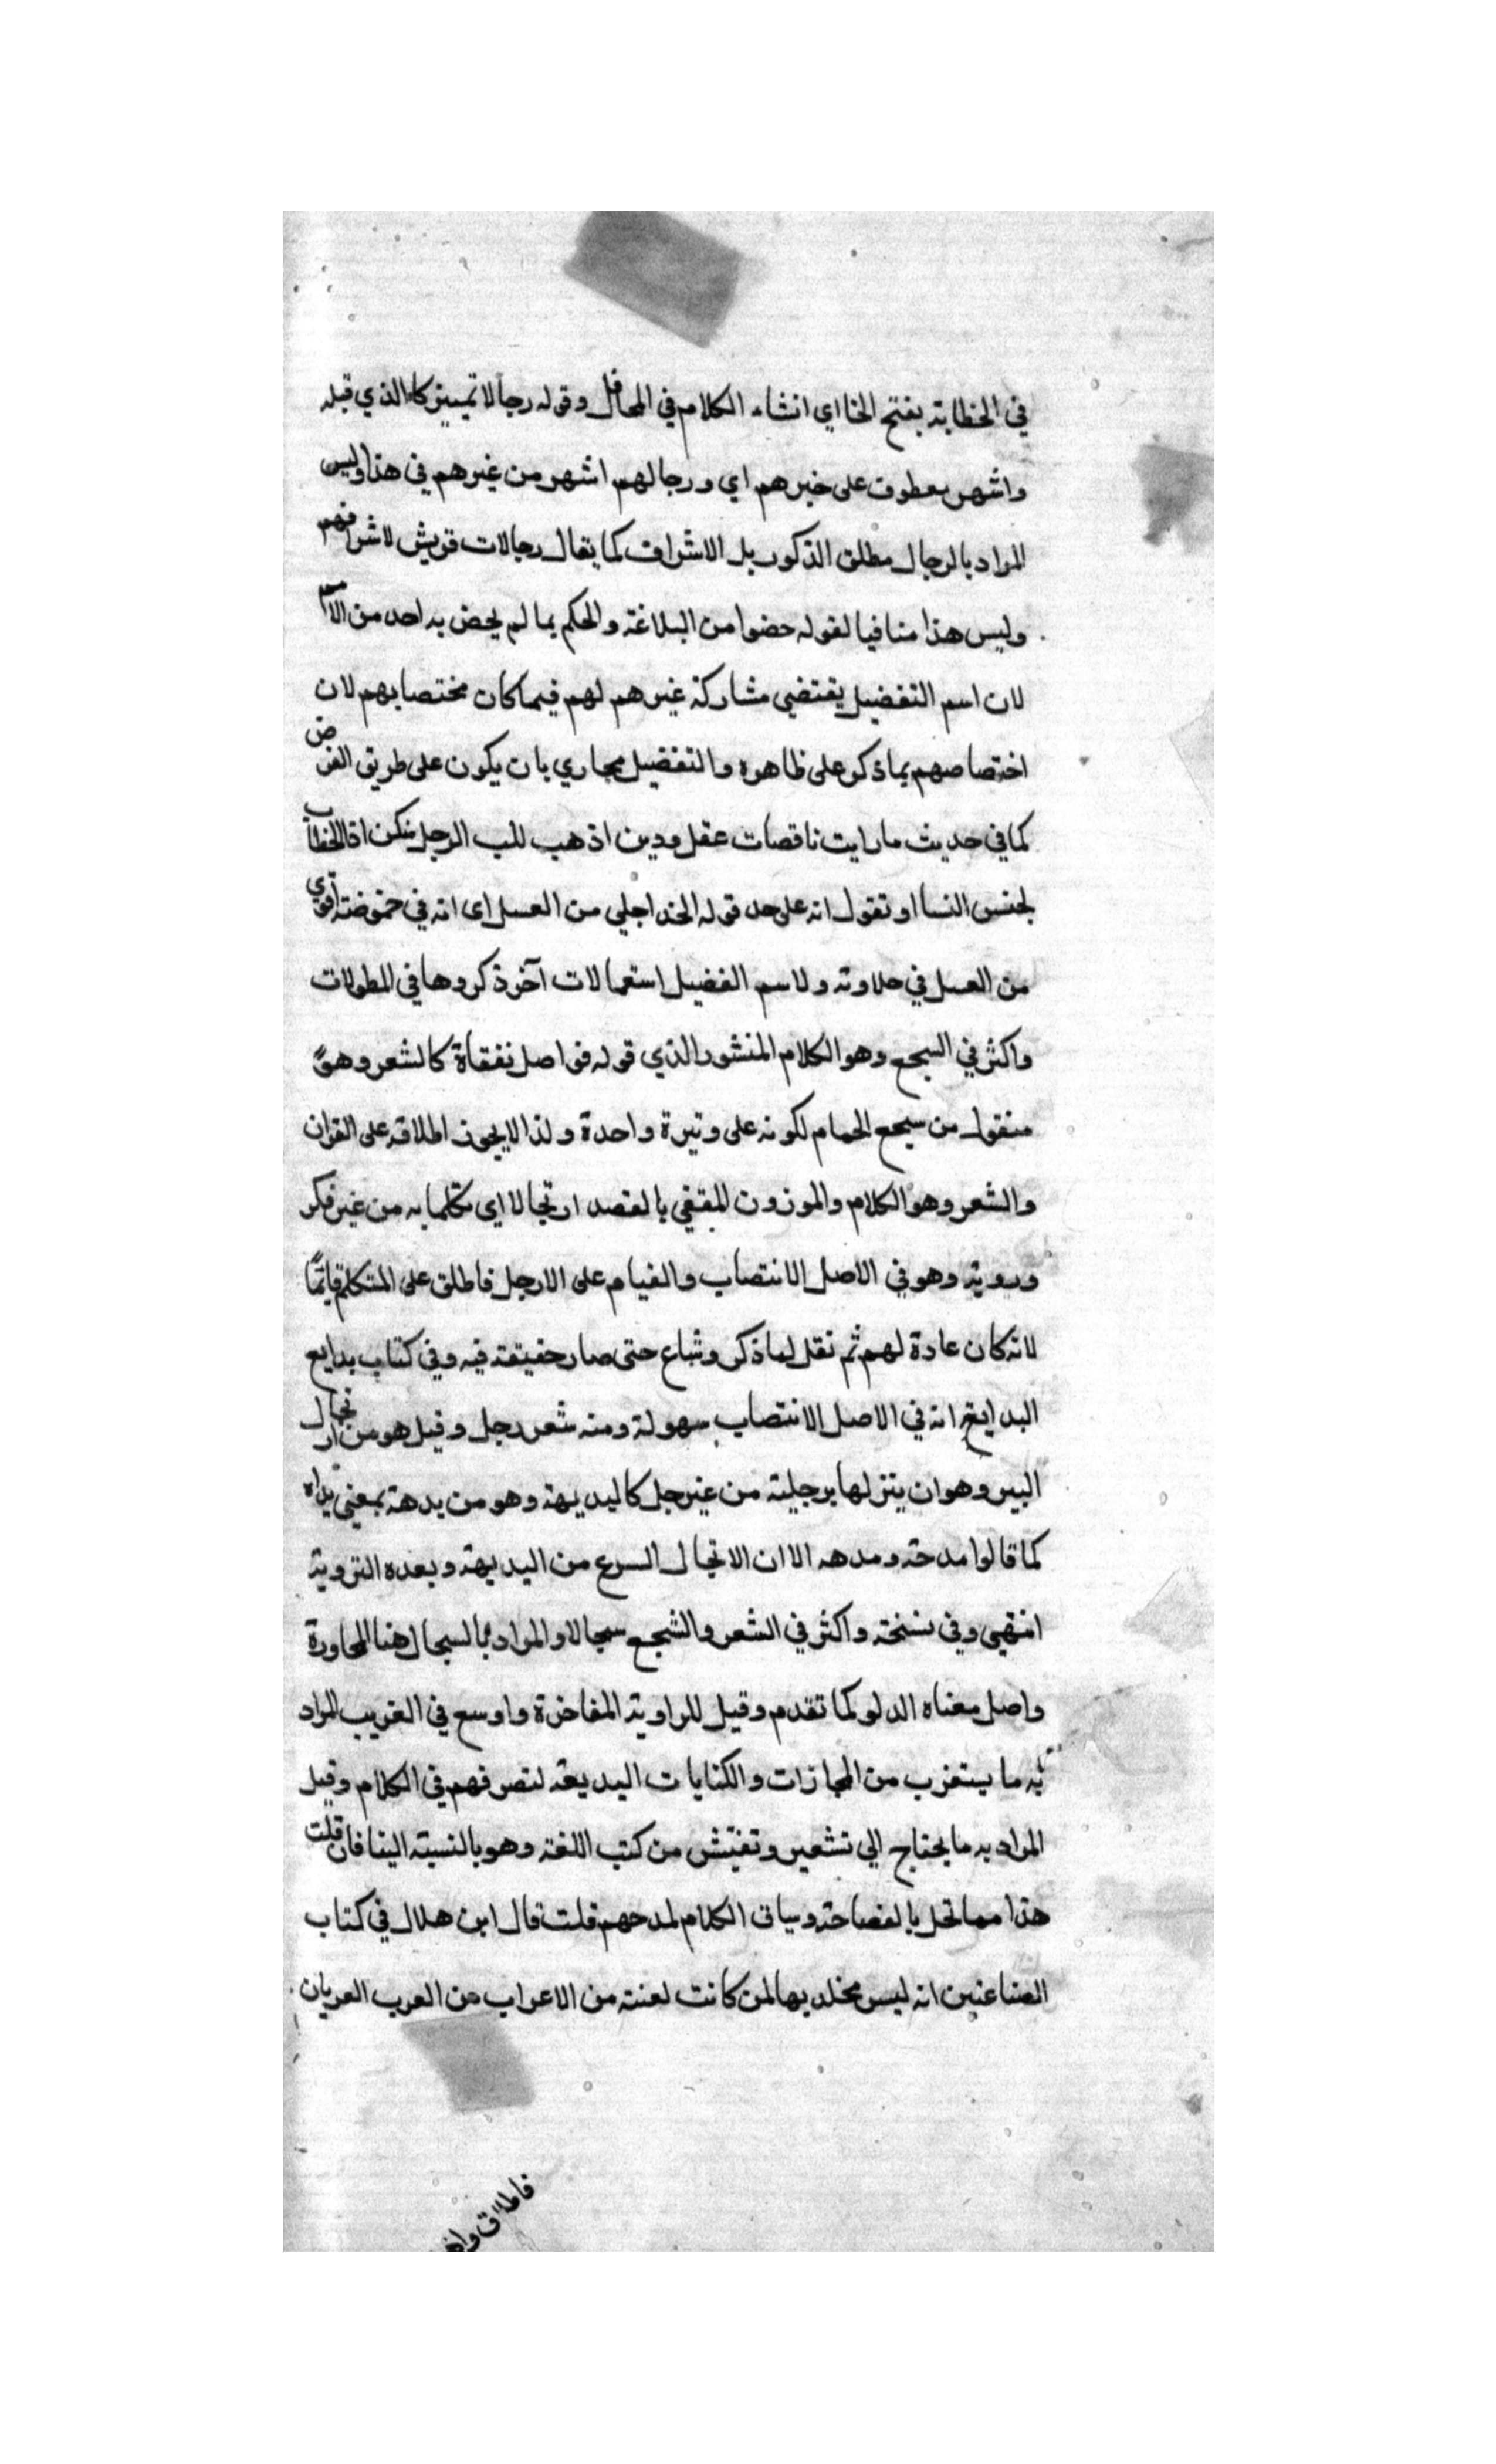 في الخطابة بفتح الخا اي انشاء الكلام في المحافل وقوله رجالا تمييز كالذي قبله
واشهر معطوف على خبرهم اي ورجالهم اشهر من غيرهم في هذا وليس
المراد بالرجال مطلق الذكور بل الاشراف كما يقال رجالات قريش لاشرافهم
وليس هذا منافيا لقوله خصوا من البلاغة والحكم بما لم يخص به احد من الامم
لان اسم التفضيل يقتضي مشاركة غيرهم لهم فيما كان مختصا بهم لان
اختصاصهم بما ذكر على ظاهره والتفضيل مجازي بان يكون على طريق الفرض
كما في حديث ما رايت ناقصات عقل ودين اذهب للب الرجل منكن اذ الخطاب
لجنس النسا او تقول انه على حد قوله الخل احلي من العسل اى انه في حموضته اقوي
من العسل في حلاوته ولاسم الفضيل استعمالات آخر ذكروها في المطولات
واكثر في السجع وهو الكلام المنشور الذي قوله فواصل نفقاة كالشعر وهو
منقول من سجع الحمام لكونه على وتيرة واحدة ولذا لايجوز اطلاقه على القران
والشعر وهو الكلام والموزون المقفي بالقصد ارتجالا اي متكلما به من غير فكر
وروية وهو في الاصل الانتصاب والقيام على الارجل فاطلق على المتكلم قائمًا
لانه كان عادة لهم ثم نقل لما ذكر وشاع حتى صار حقيقته فيه وفي كتاب بدايع
البدايع انه في الاصل الانتصاب بسهولة ومنه شعر رجل وقيل هو من ارتجال
البير وهو ان ينزلها برجليه من غير حبل كالبديهة وهو من بدهة بمعني بداه
كما قالوا مدحة ومدهه الا ان الاتجال السرع من البديهة وبعده التروية
انتهي وفي نسخة واكثر في الشعر والشجع سجالا والمراد بالسجال هنا المحاورة
واصل معناه الدلو كما تقدم وقيل للراوية المفاخرة واوسع في الغريب المراد
به ما يستغرب من المجازات والكنايات البديعة لتصرفهم في الكلام وقيل
المراد به ما يحتاج الي تشعير وتفتيش من كتب اللغة وهو بالنسبة الينا فان قلت
هذا مما تحل بالفصاحة وسياق الكلام لمدحهم قلت قال ابن هلال في كتاب
الصناعتين انه ليس مخلد بها لمن كانت لعنته من الاعراب من العرب العربان
فاطلاق